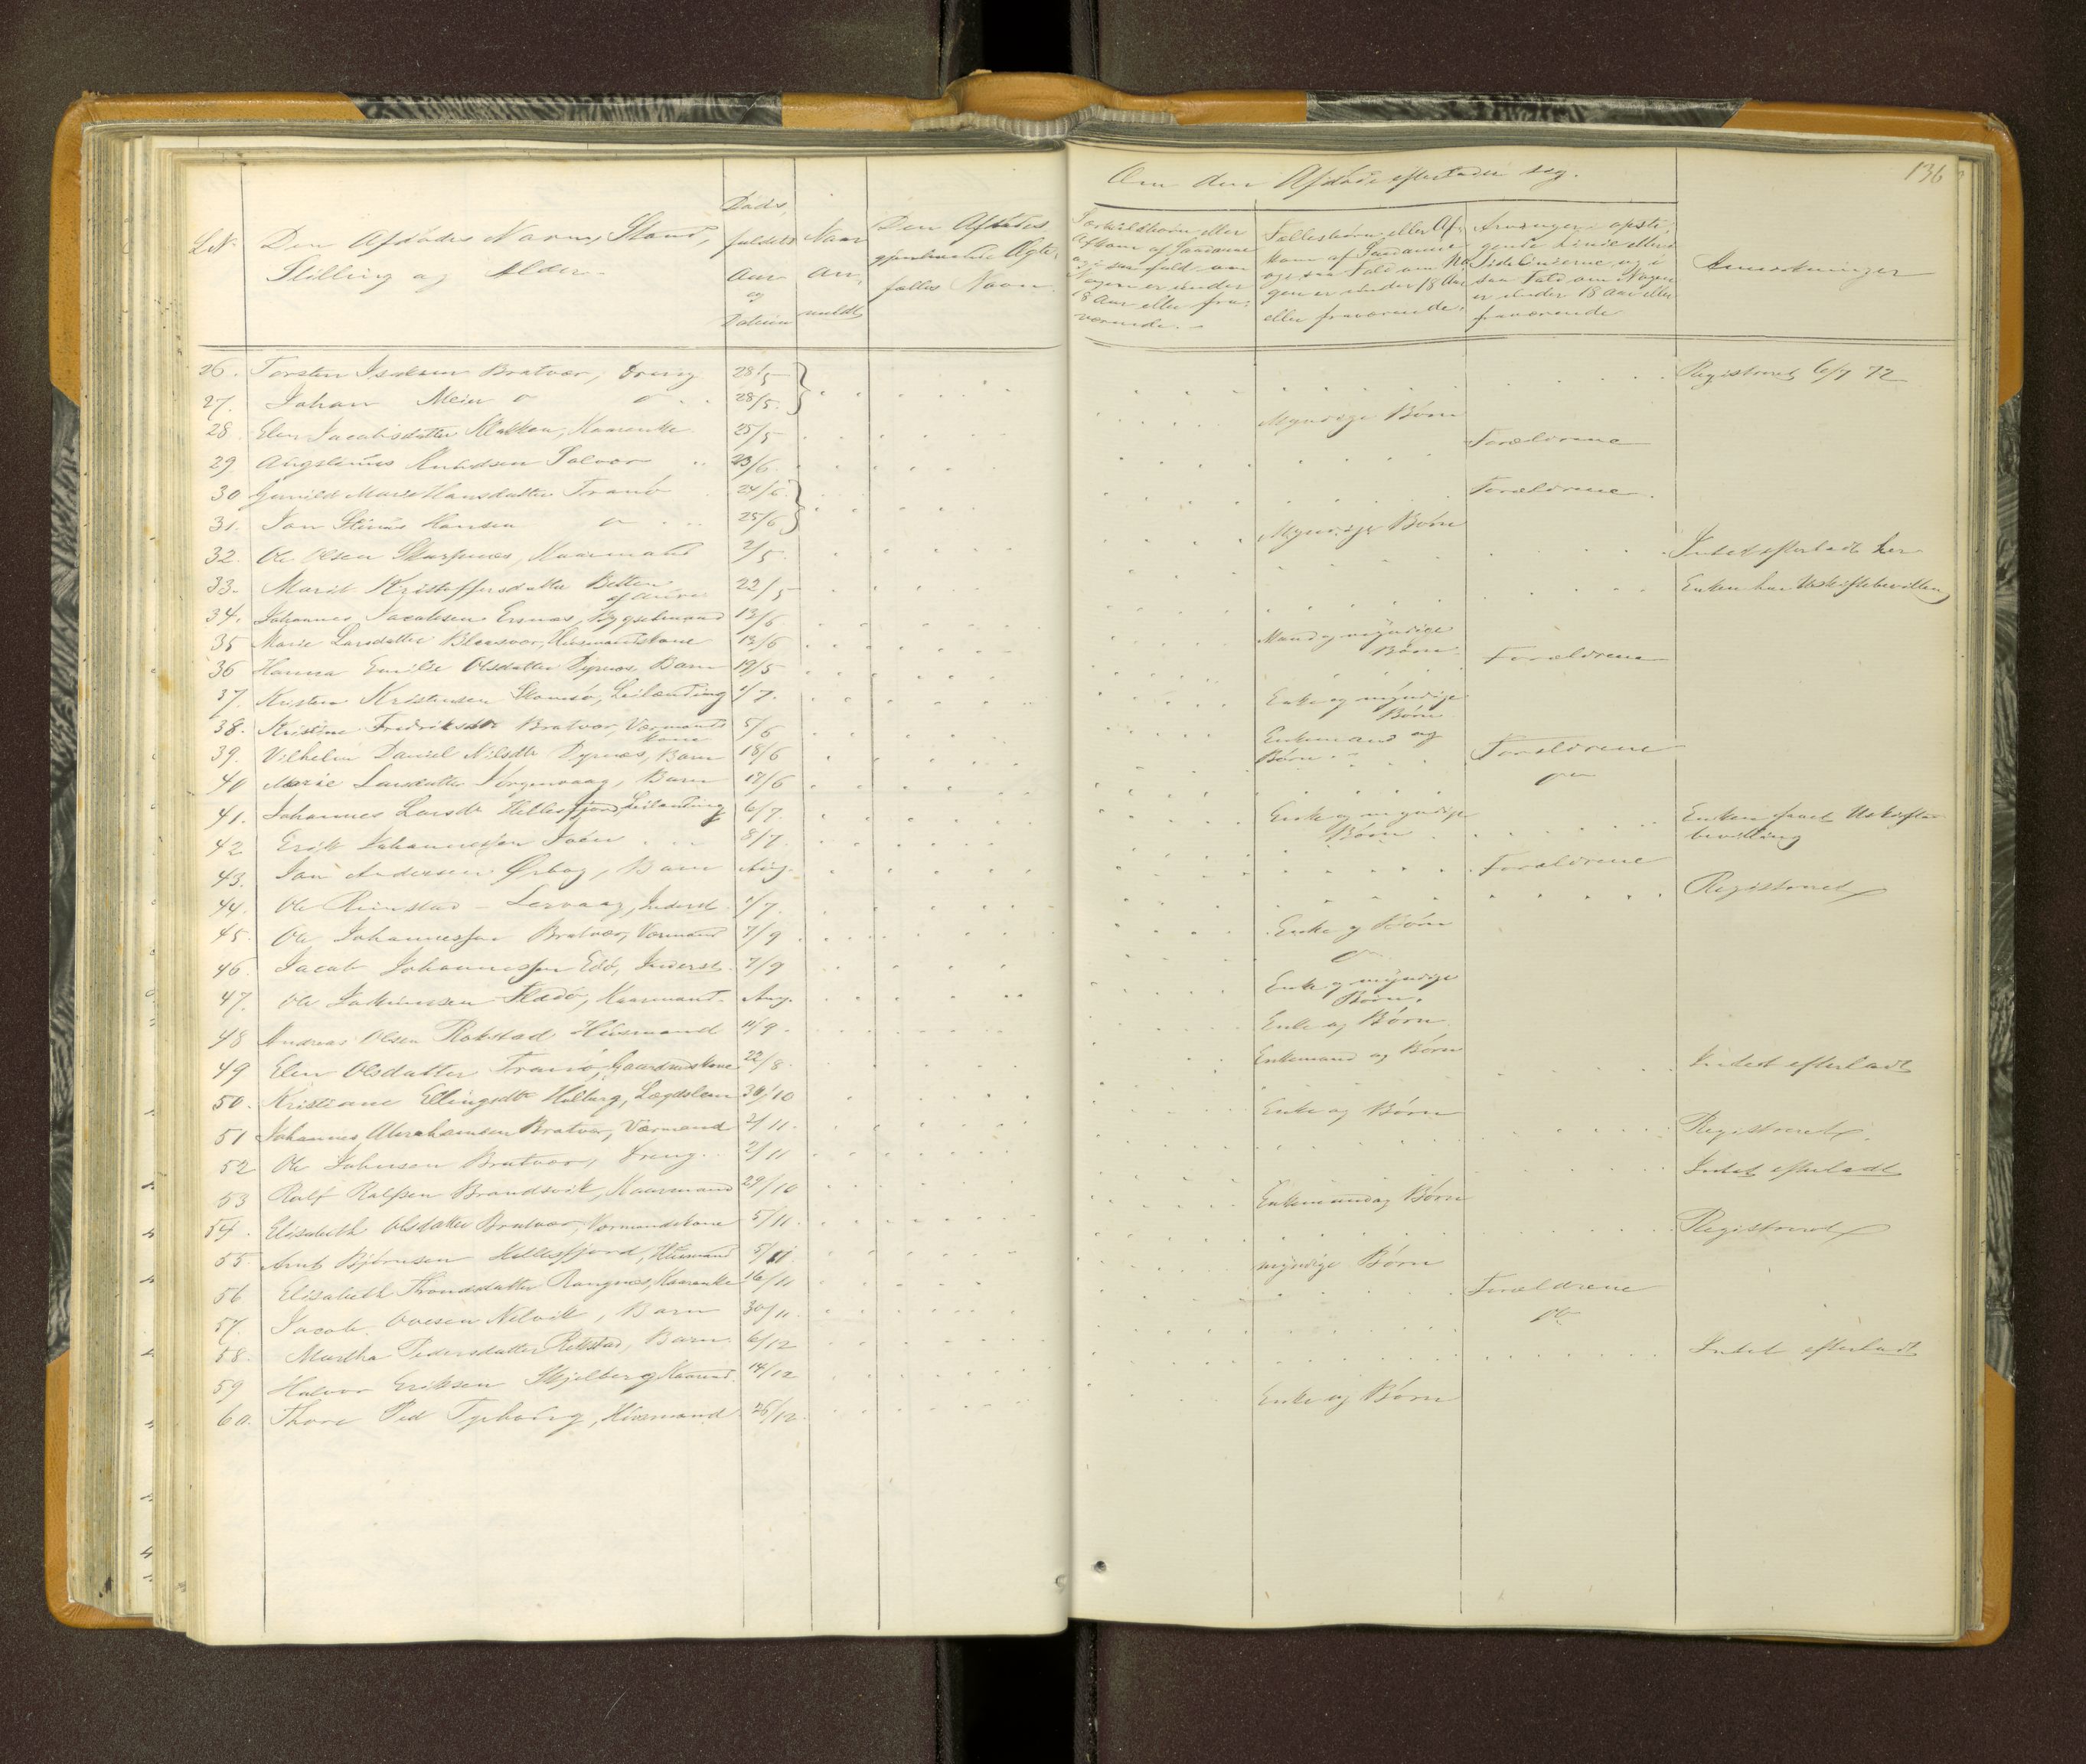 136
Om den Afdøde efterlader sig.
Den Afdødes Navn, Stand,
Stilling og Alder.
Døds,
faldets
Aar
og
Datum
Naar
an,
meldt
Den Afdødes
gjenlevende Ægte,
fælles Navn
Særkuldbørn eller
Afkom af Saadanne
og i saa fald om
Nogen er under
18 Aar eller fra,
værende.
Fællesbørn eller Af,
kom af Saadanne
og i saa Fald om No,
gen er under 18 Aar
eller fraværende.
Arvinger i opsti,
gende Linie eller i
Sidelinierne og i
saa Fald om Nogen
er under 18 Aar eller
fraværende
Anmærkninger
26. Torsten Bratvær, Dreng 28/5 Registreret 6/7 72
27. Johan Meier 28/5
28 Elen Jacobsdatter Klakken, Kaarenke 25/5 Myndige Børn
29 Knudsen 23/6 Forældrene
30 Gunild Marie Hansdatter Tranø 24/6 Forældrene
31. Jon Hansen 25/6
32. Ole Olsen Skarpnes, Kaarmand 2/5 Myndige Børn
33. Marit Kristoffersdatter Betten 22/5 Intet efterladt her
34. Johannes Jacobsen Ersnes, Bygselmand 13/6 Enken har Uskiftebevilling
35 Marie Larsdatter Husmandskone 13/6 Mand og myndige
Børn
36 Hanna Emilie Olsdatter Dyrnes, Barn 19/5 Forældrene
37. Kristen Kristensen Leilænding 1/7. Enke og myndige
Børn
38. Kristine Fredriksdtr Bratvær, Værmands
kone 5/6 Enkemand og
Børn
39. Vilhelm Daniel Nilsdtr Dyrnes, Barn 18/6 Forældrene
40 Marie Larsdatter Jørgenvaag, Barn 17/6
41. Johannes Larsdtr Hellesfjord, Leilænding 6/7. Enke og myndige
Børn
42 Erik Johannessen 8/7 Enken faaet Uskifte
bevilling
43. Jon Andersen Ørbog, Barn Aug. Forældrene
44. Ole Rimstad - Lervaag, Inderst 1/7. Registreret
45. Ole Johannessen Bratvær, Værmand 7/9 Enke og Børn
46. Jacob Johannessen Edø, Inderst 7/9
47. Ole Fladø, Kaarmand. Aug. Enke og myndige
Børn.
48 Andreas Olsen Rokstad Husmand 11/9. Enke og Børn
49 Elen Olsdatter Tranø, Gaardmandskone 22/8. Enkemand og Børn
50. Kristiane Ellingsdtr Lægdslem 30/10 Intet efterladt
51 Johannes Abrahamsen Bratvær, Værmand 2/11. Enke og Børn
52 Ole Johnsen Bratvær, Dreng 2/11 Registreret
53 Rolf Rolfsen Brandsvik, Kaarmand 29/10 Intet efterladt
54. Elisabeth Olsdatter Bratvær, Værmandskone 5/11. Enkemand og Børn
55. Arnt Bjørnsen Hellesfjord, Husmand 5/11 Registreret
56 Elisabeth Throndsdatter Rangnes, Kaarenke 16/11 myndige Børn
57. Jacob Ovesen Nelvik, Barn 30/11 Forældrene
58. Martha Pedersdatter Rokstad, Barn. 6/12 do
59 Halvor Eriksen Skjelberg Kaarmd. 14/12 Intet efterladt
60. Thore Ped Husmand 25/12. Enke og Børn